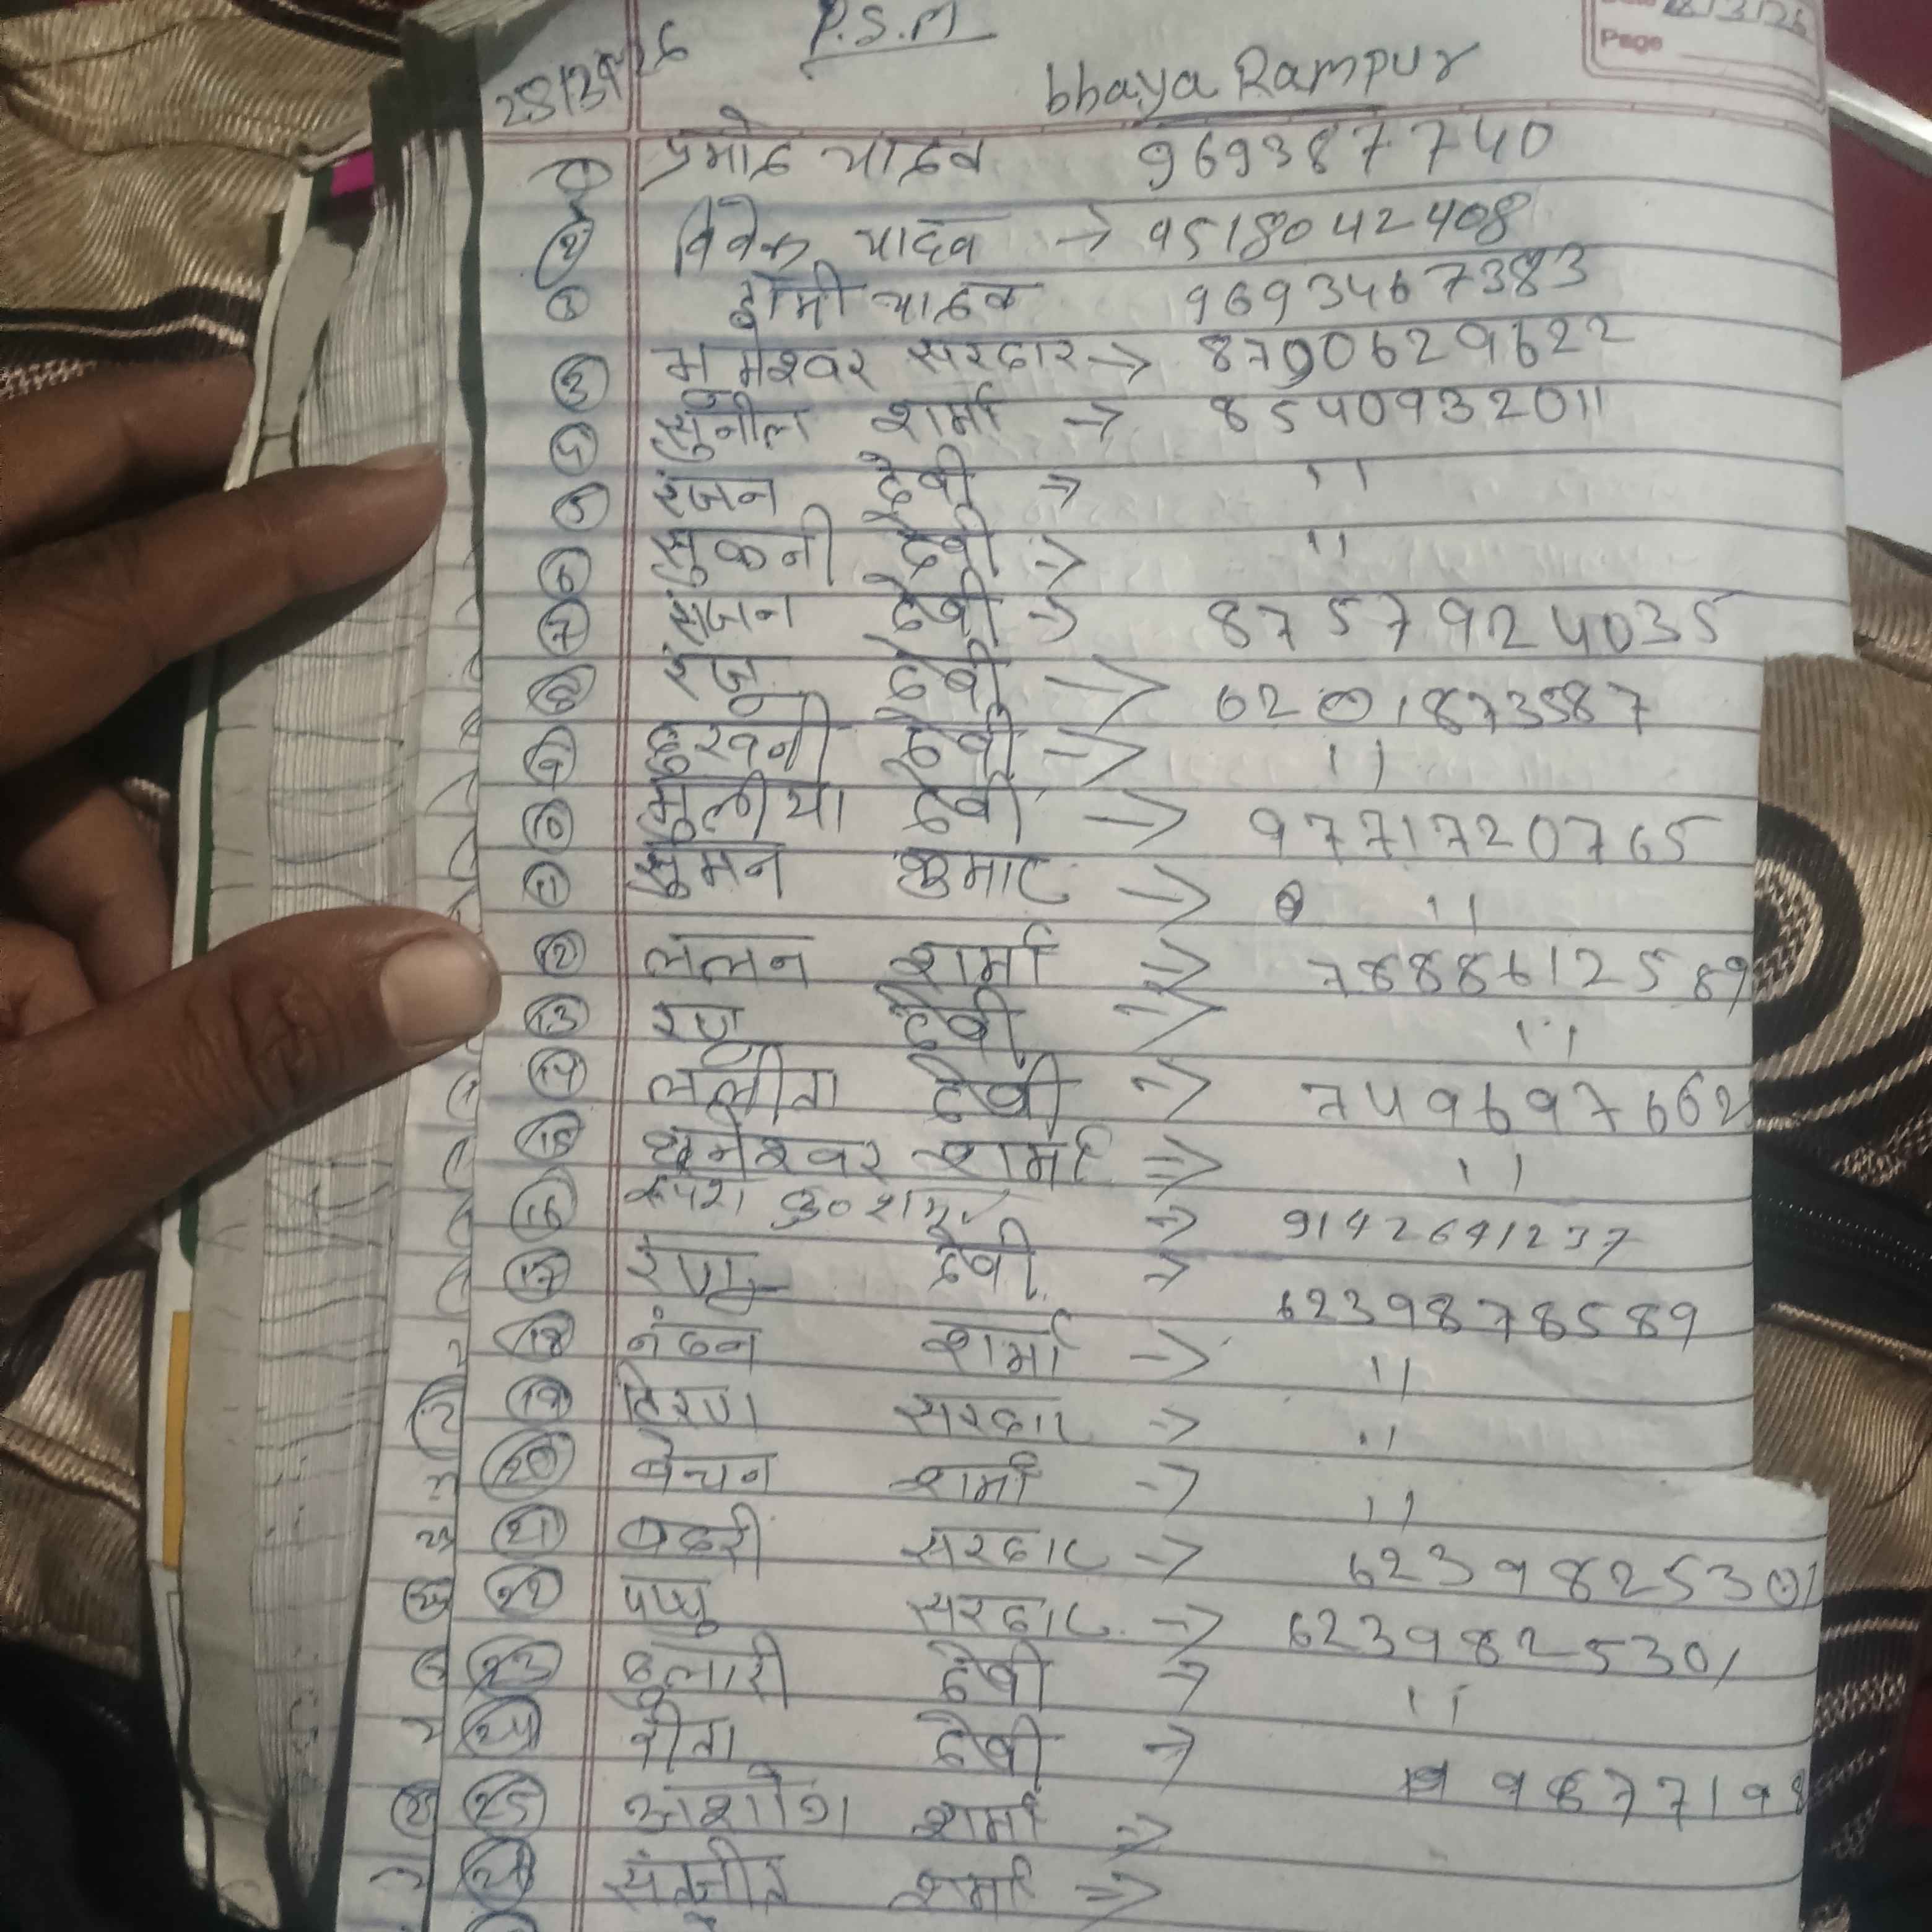 P.S.M
Page
bhaya Rampur
प्रमोद यादव 9693877740
② विवेक यादव → 9518042408
यादव 9693467383
③ सरदार → 8700629622
सुनील शर्मा → 8540932011
⑤ रंजन देवी → ''
⑥ सुकनी देवी → ''
⑦ रंजन देवी → 8757924035
⑧ रंजू देवी → 6201873587
⑨ दुखनी देवी → ''
⑩ मुलीया देवी → 9771720765
⑪ सुमन कुमार → ''
⑫ ललन शर्मा → 7888612589
⑬ देवी → ''
⑭ ललीता देवी → 749697662
⑮ शर्मा → ''
⑯ कु० शर्मा → 9142641237
⑰ देवी → 6239878589
⑱ नंदन शर्मा → ''
⑲ सरदार → ''
⑳ बेचन शर्मा → ''
㉑ बदरी सरदार → 6239825301
㉒ पप्पु सरदार → 6239825301
㉓ दुलारी देवी → ''
㉔ देवी → 9877198
㉕ शर्मा →
शर्मा →